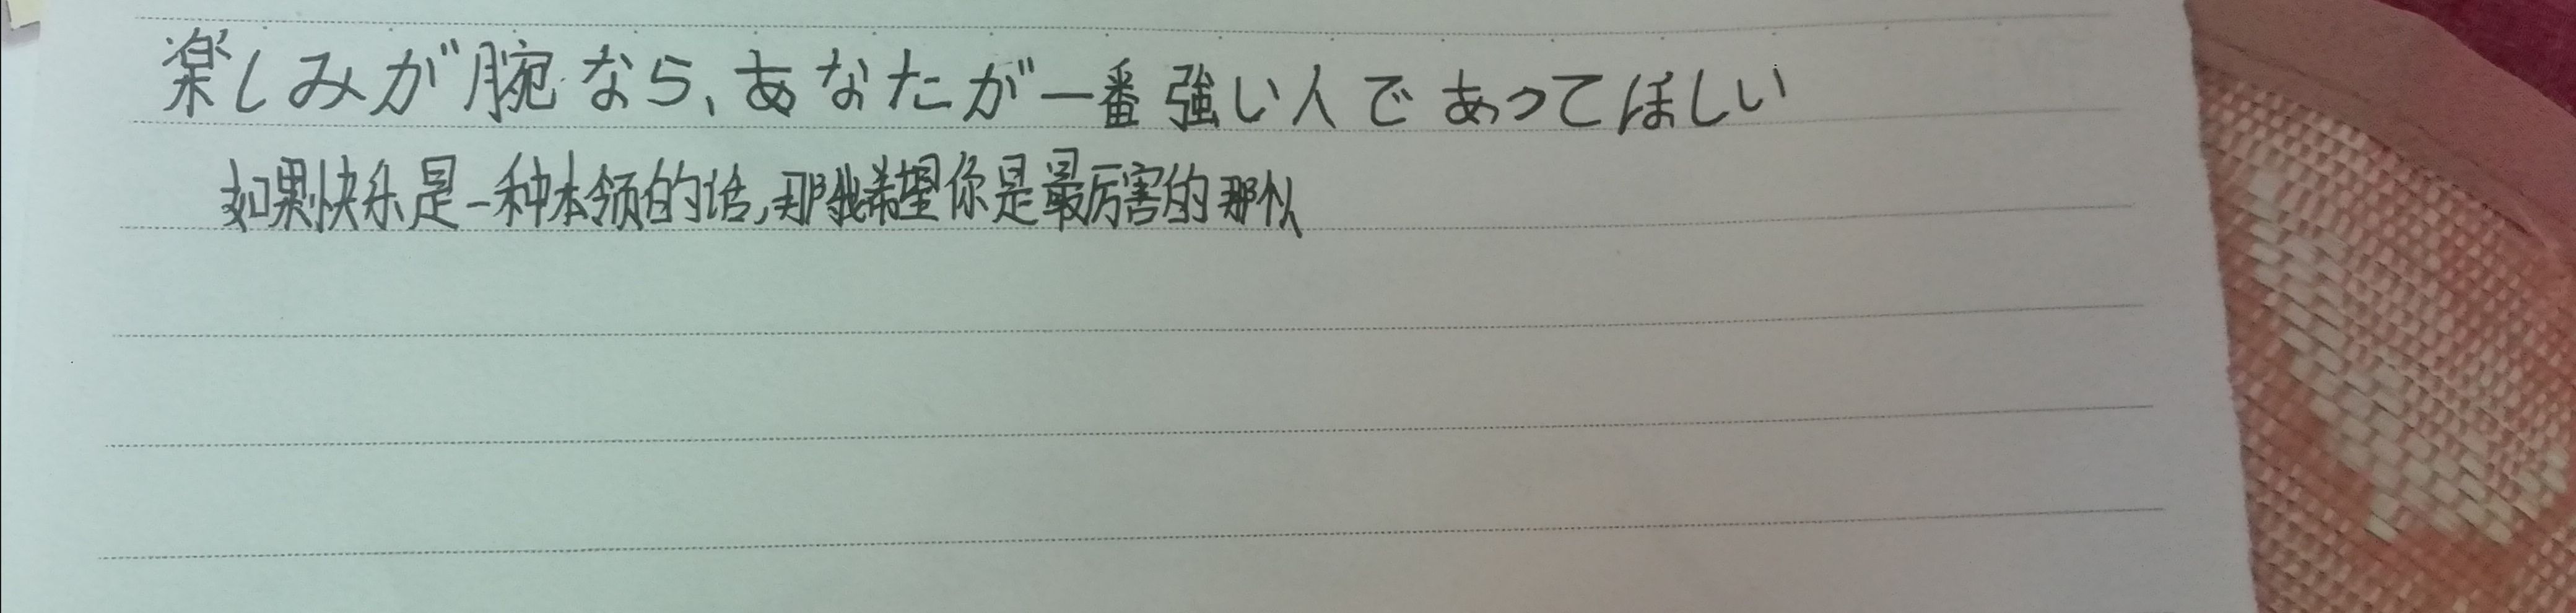 楽しみが腕なら、あなたが一番強い人であってほしい
如果快乐是一种本领的话,那我希望你是最厉害的那